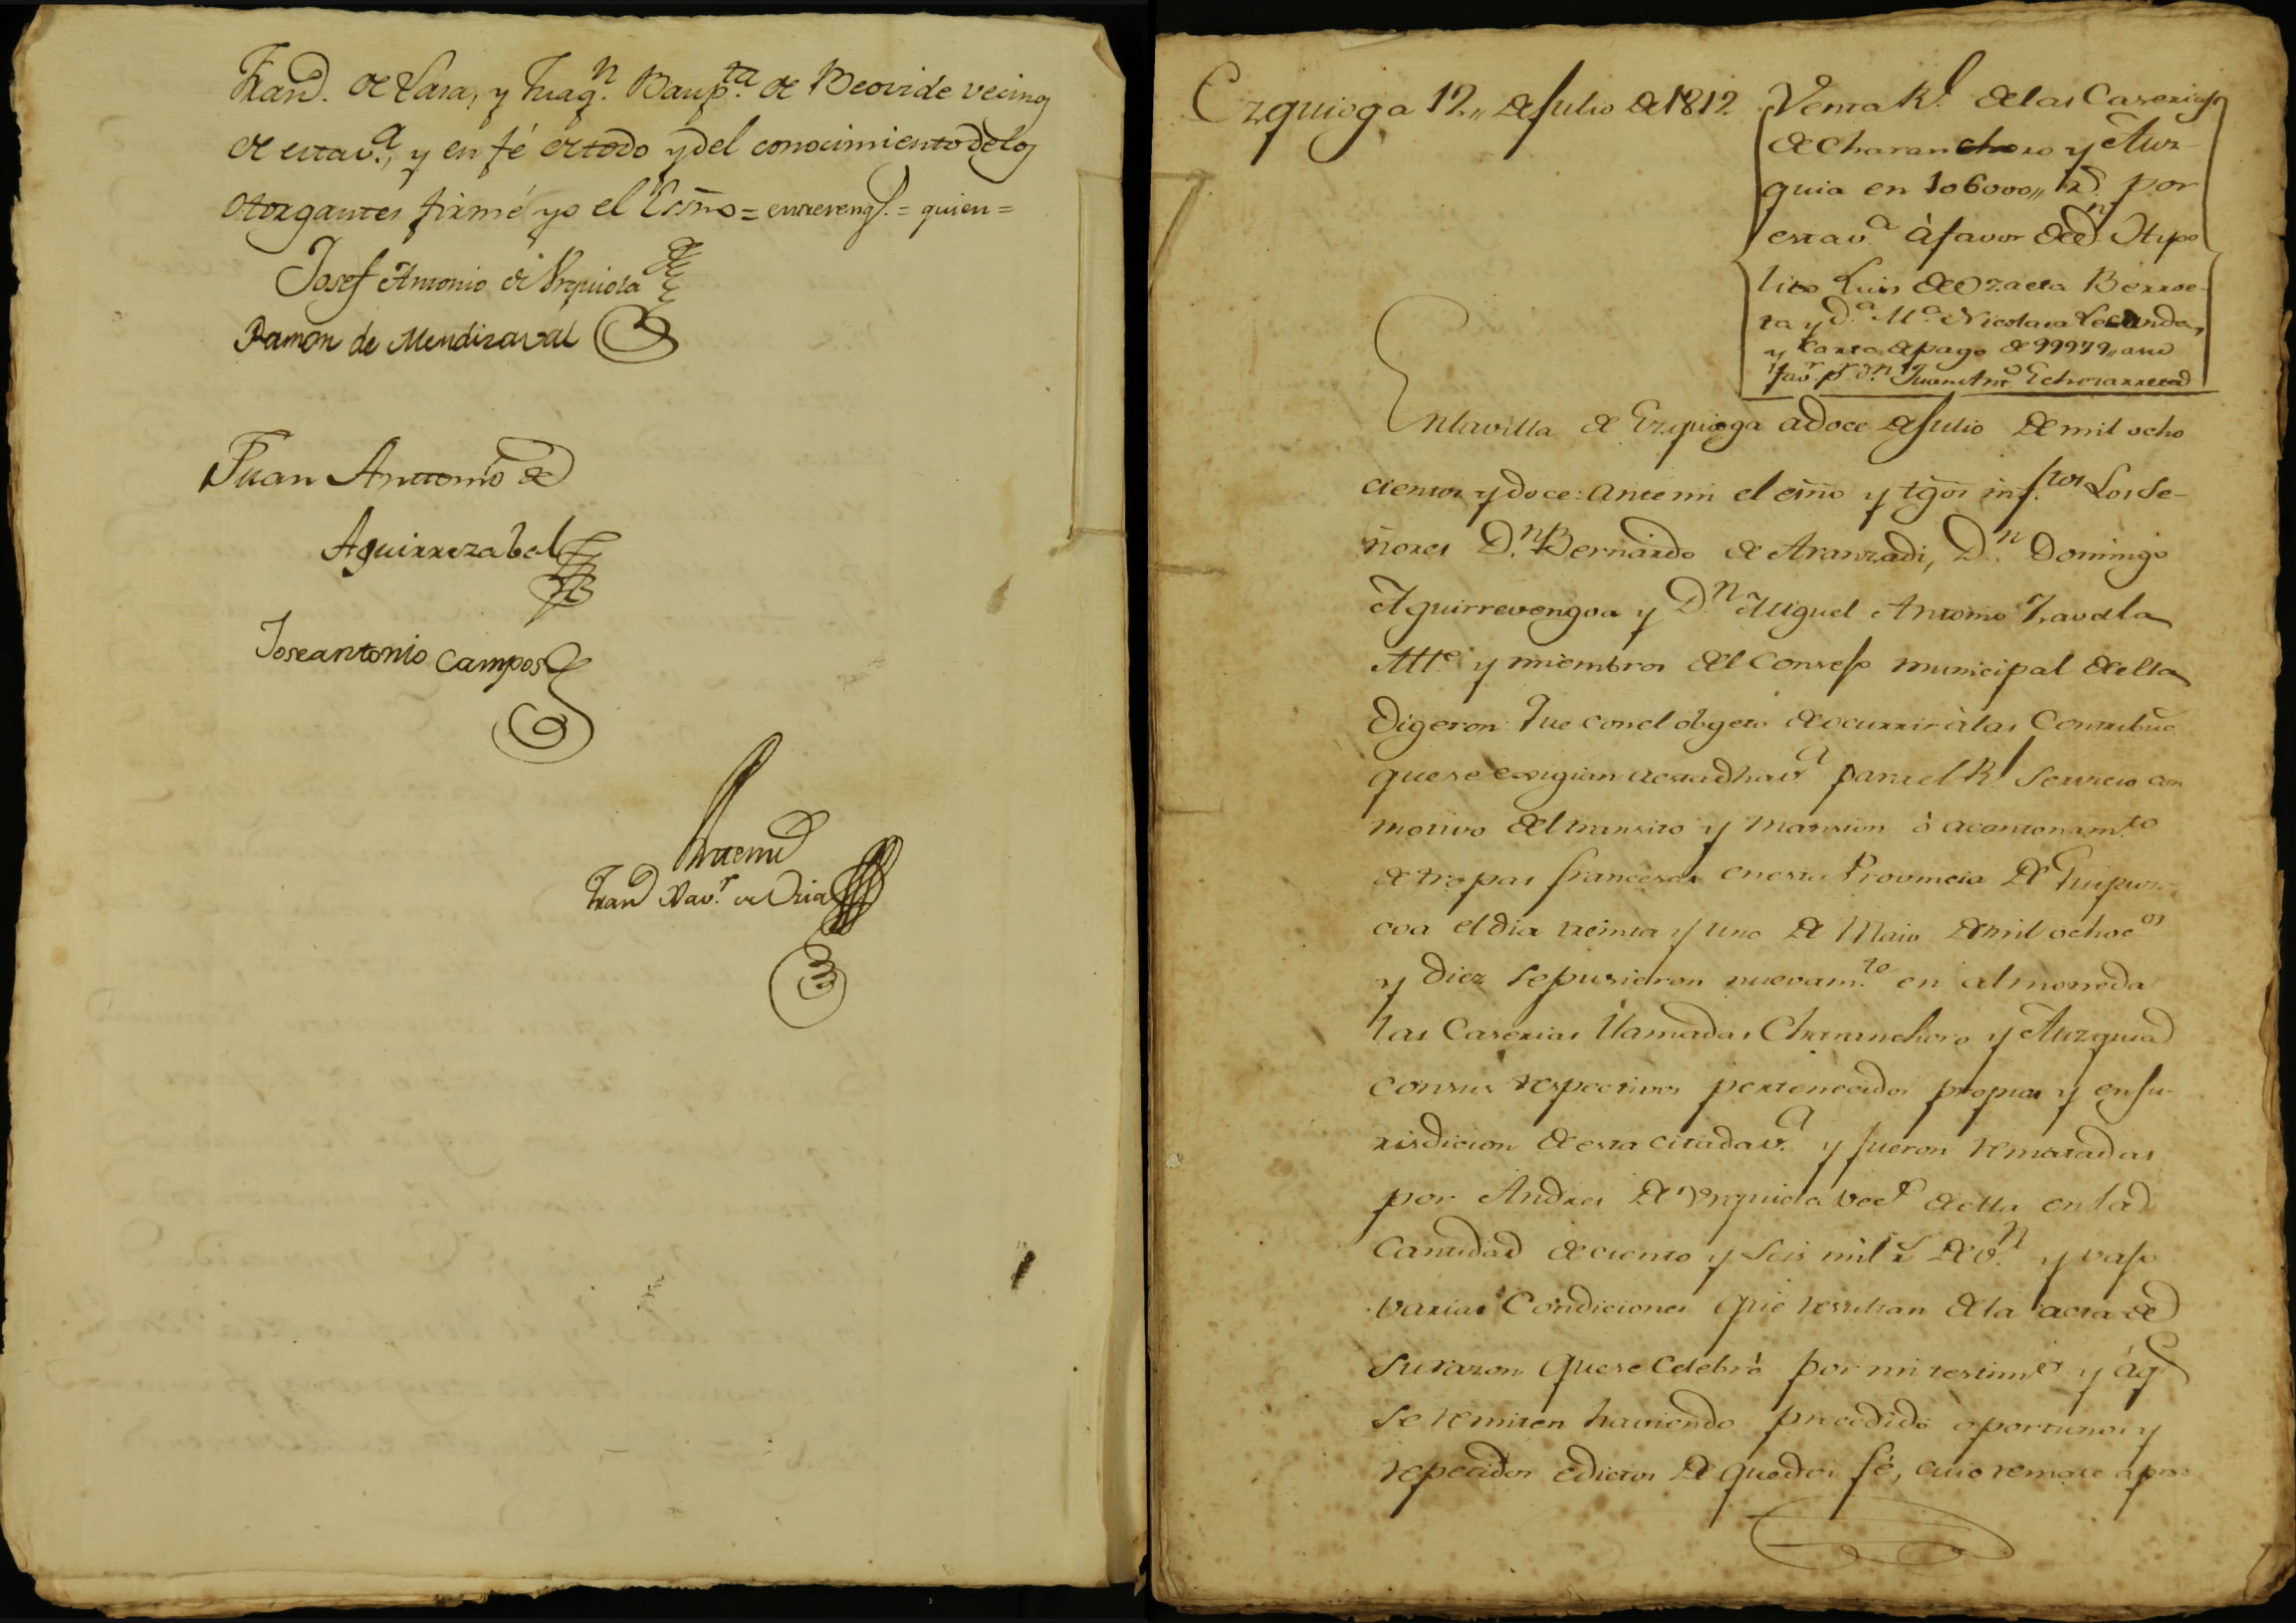 Fran.co de Lasa, y Juaq.n Baup.ta de Beovide vecinos
de esta v.a, y en fé de todo y del conocimiento de los
otorgantes firmé yo el Essno = entrereng.s = quien =
Josef Antonio de Urquiola
Ramon de Mendizaval
Juan Antonio de
Aguirrezabal
Joseantonio Campos
Antemi
Fran.co Xav.r de Oria
Ezquioga 12,, de Julio de 1812
Venta R.l de las Caserias
de Charanchoro y Auz-
quia en 106000,, r.s por
esta v.a à favor de d.n Hypo
lito Luis de Ozaeta Berroe-
ta y d.a M.a Nicolasa Lecanda,
y carta de pago de 99979,, a su
fav.r p.r d.n Juan Ant.o Echezarreta
En la villa de Ezquioga a doce de Julio de mil ocho
cientos y doce: ante mi el essno y tgos inf.tos Los Se-
ñores D.n Bernardo de Aranzadi, D.n Domingo
Aguirrevengoa y D.n Miguel Antonio Zavala
All.e y miembros del Consejo municipal de ella
Digeron: Que con el obgeto de ocurrir à las Contribuc.
que se exigian a esta dha v.a para el R.l Servicio con
motivo del transito y mansion ò acantonam.to
de tropas francesas en esta Provincia de Guipuz-
coa el dia treinta y uno de Maio de mil ochoc.os
y diez se pusieron nuevam.te en almoneda
las Caserias llamadas Charanchoro y Auzquia
con sus respectivos pertenecidos propias y en ju-
risdicion de esta citada v.a y fueron rematadas
por Andres de Urquiola vec.o de ella en la
Cantidad de ciento y seis mil r.s de v.n y vajo
varias Condiciones que resultan de la acta de
su razon que se celebrò por mi testim.o y à q.e
se remiten haviendo precedido oportunos y
repetidos edictos de que doi fé, cuio remate apro